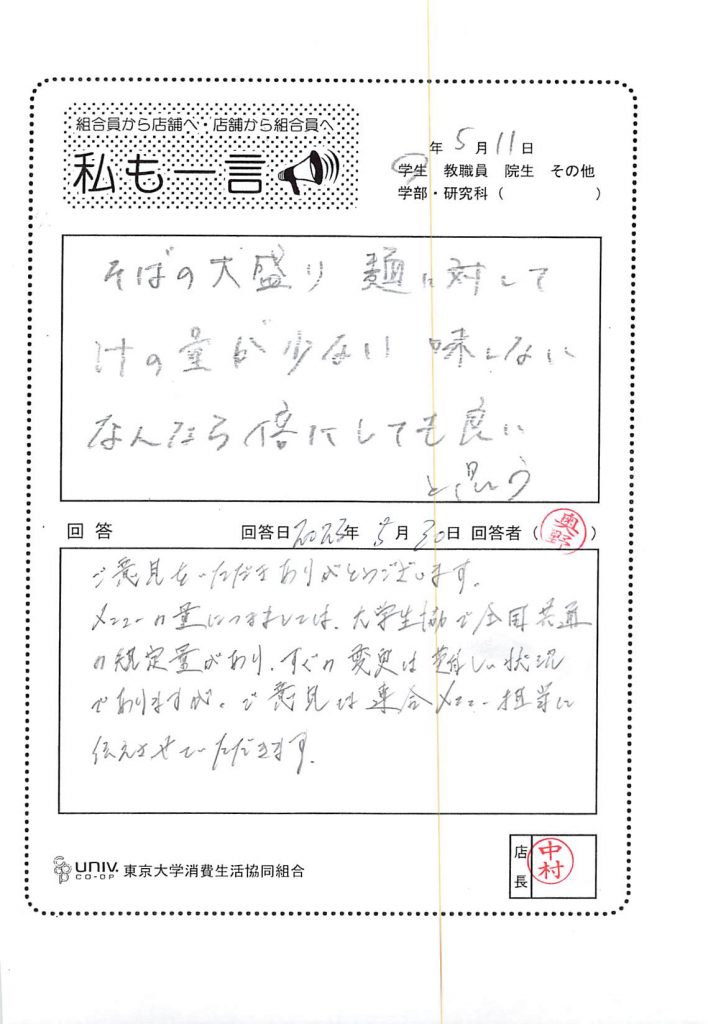 組合員から店舗へ・店舗から組合員へ
私も一言
年5月11日
学生 教職員 院生 その他
学部・研究科（ ）
そばの大盛り 麺に対して
汁の量が少ない 味しない
なんなら倍にしても良い
と思う
回答 回答日2023年5月30日 回答者（奥野）
ご意見をいただきありがとうございます。
メニューの量につきましては、大学生協で全国共通
の規定量があり、すぐの変更は難しい状況
でありますが、ご意見は連合メニュー担当に
伝えさせていただきます。
UNIV.
CO-OP
東京大学消費生活協同組合
店長
中村